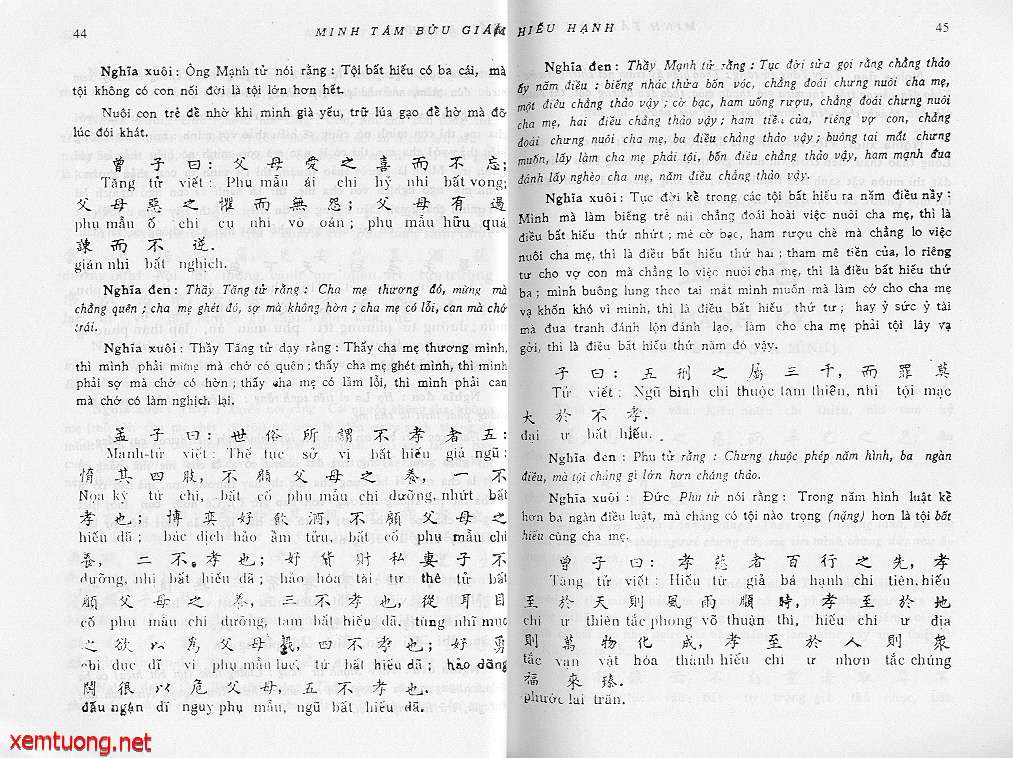 44 MINH TÂM BỬU GIÁM
Nghĩa xuôi : Ông Mạnh tử nói rằng : Tội bất hiếu có ba cái, mà
tội không có con nối đời là tội lớn hơn hết.
Nuôi con trẻ để nhờ khi mình già yếu, trữ lúa gạo để hờ mà đỡ
lúc đói khát.
曾子曰：父母愛之喜而不忘；
Tăng tử viết : Phụ mẫu ái chi hỷ nhi bất vong;
父母惡之懼而無怨；父母有過
phụ mẫu ố chi cụ nhi vô oán ; phụ mẫu hữu quá
諫而不逆.
gián nhi bất nghịch.
Nghĩa đen : Thầy Tăng tử rằng : Cha mẹ thương đó, mừng mà
chẳng quên ; cha mẹ ghét đó, sợ mà không hờn ; cha mẹ có lỗi, can mà chớ
trái.
Nghĩa xuôi : Thầy Tăng tử dạy rằng : Thấy cha mẹ thương mình,
thì mình phải mừng mà chớ có quên ; thấy cha mẹ ghét mình, thì mình
phải sợ mà chớ có hờn ; thấy cha mẹ có lầm lỗi, thì mình phải can
mà chớ có làm nghịch lại.
孟子曰：世俗所謂不孝者五：
Mạnh-tử viết : Thế tục sở vị bất hiếu giả ngũ :
惰其四肢，不顧父母之養，一不
Nọa kỳ tứ chi, bất cố phụ mẫu chi dưỡng, nhứt bất
孝也；博奕好飲酒，不顧父母之
hiếu dã ; bác dịch hảo ẩm tửu, bất cố phụ mẫu chi
養，二不孝也；好貨財私妻子不
dưỡng, nhị bất hiếu dã ; hảo hóa tài tư thê tử bất
顧父母之養，三不孝也，從耳目
cố phụ mẫu chi dưỡng, tam bất hiếu dã, túng nhĩ mục
之欲以為父母戮，四不孝也；好勇
chi dục dĩ vi phụ mẫu lục, tứ bất hiếu dã ; hảo dõng
鬪很以危父母，五不孝也.
đấu ngận dĩ nguy phụ mẫu, ngũ bất hiếu dã.
HIẾU HẠNH 45
Nghĩa đen : Thầy Mạnh tử rằng : Tục đời sửa gọi rằng chẳng thảo
ấy năm điều : biếng nhác thửa bốn vóc, chẳng đoái chưng nuôi cha mẹ,
một điều chẳng thảo vậy ; cờ bạc, ham uống rượu, chẳng đoái chưng nuôi
cha mẹ, hai điều chẳng thảo vậy ; ham tiền của, riêng vợ con, chẳng
đoái chưng nuôi cha mẹ, ba điều chẳng thảo vậy ; buông tai mắt chưng
muốn, lấy làm cha mẹ phải tội, bốn điều chẳng thảo vậy, ham mạnh đua
đánh lấy nghèo cha mẹ, năm điều chẳng thảo vậy.
Nghĩa xuôi : Tục đời kể trong các tội bất hiếu ra năm điều nầy :
Mình mà làm biếng trễ nải chẳng đoái hoài việc nuôi cha mẹ, thì là
điều bất hiếu thứ nhứt ; mê cờ bạc, ham rượu chè mà chẳng lo việc
nuôi cha mẹ, thì là điều bất hiếu thứ hai ; tham mê tiền của, lo riêng
tư cho vợ con mà chẳng lo việc nuôi cha mẹ, thì là điều bất hiếu thứ
ba ; mình buông lung theo tai mắt mình muốn mà làm cớ cho cha mẹ
vạ khốn khó vì mình, thì là điều bất hiếu thứ tư ; hay ỷ sức ỷ tài
mà đua tranh đánh lộn đánh lạo, làm cho cha mẹ phải tội lây vạ
gởi, thì là điều bất hiếu thứ năm đó vậy.
子曰：五刑之屬三千，而罪莫
Tử viết : Ngũ hình chi thuộc tam thiên, nhi tội mạc
大於不孝.
đại ư bất hiếu.
Nghĩa đen : Phu tử rằng : Chưng thuộc phép năm hình, ba ngàn
điều, mà tội chẳng gì lớn hơn chẳng thảo.
Nghĩa xuôi : Đức Phu tử nói rằng : Trong năm hình luật kể
hơn ba ngàn điều luật, mà chẳng có tội nào trọng (nặng) hơn là tội bất
hiếu cùng cha mẹ.
曾子曰：孝慈者百行之先，孝
Tăng tử viết : Hiếu từ giả bá hạnh chi tiên, hiếu
至於天則風雨順時，孝至於地
chí ư thiên tắc phong võ thuận thì, hiếu chí ư địa
則萬物化成，孝至於人則眾
tắc vạn vật hóa thành hiếu chí ư nhơn tắc chúng
福來臻.
phước lai trăn.
xemtuong.net